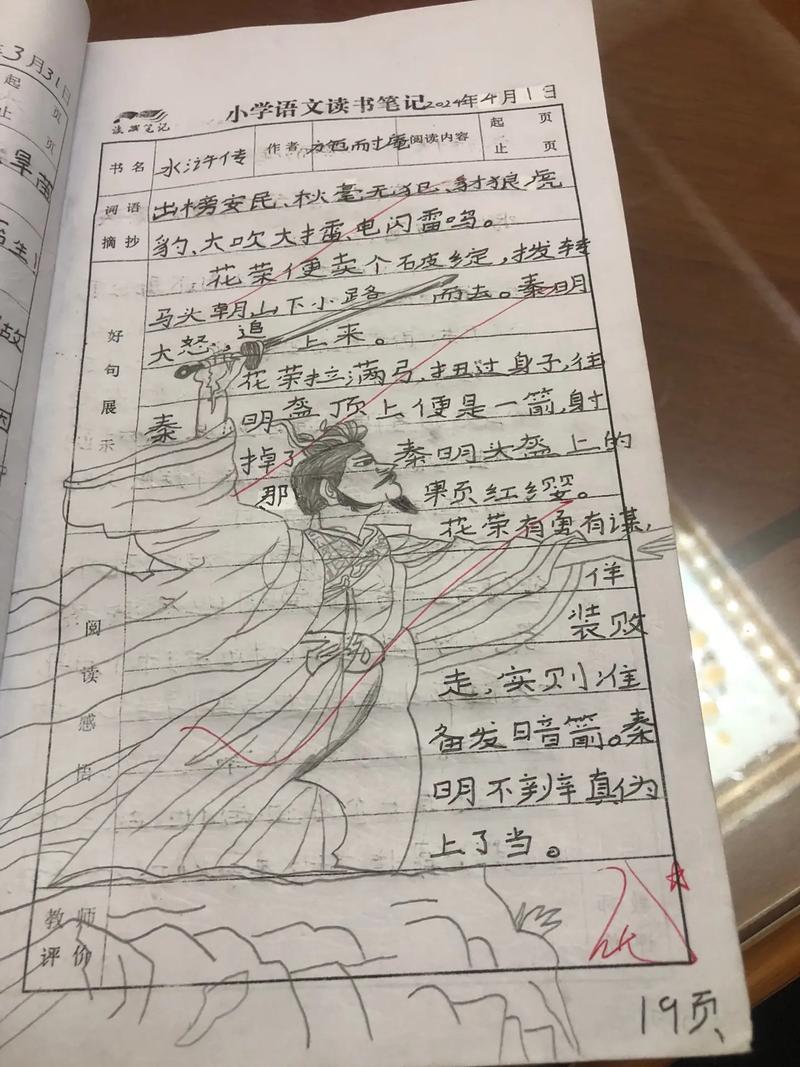 年3月31日
起 页
止 页
小学语文读书笔记 2024年4月1日
读书笔记
书名 水浒传 作者 施耐庵 阅读内容 起 页
止 页
词语 出榜安民、秋毫无犯、豺狼虎
摘抄 豹、大吹大擂、电闪雷鸣。
花荣便卖个破绽,拨转
马头朝山下小路 而去。秦明
大怒,追 上来。
好句展示
花荣拉满弓,扭过身子,往
秦 明盔顶上便是一箭,射
掉了 秦明头盔上的
那 颗红缨。
花荣有勇有谋,
佯
装败
阅读感悟
走,实则准
备发暗箭。秦
明不辨真伪
上了当。
教师
评价
19页